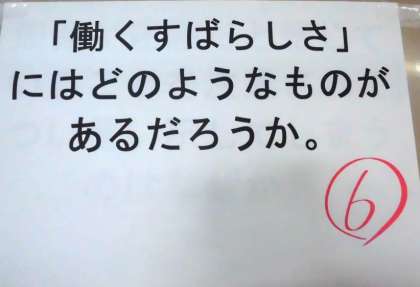 「働くすばらしさ」
にはどのようなものが
あるだろうか。
6